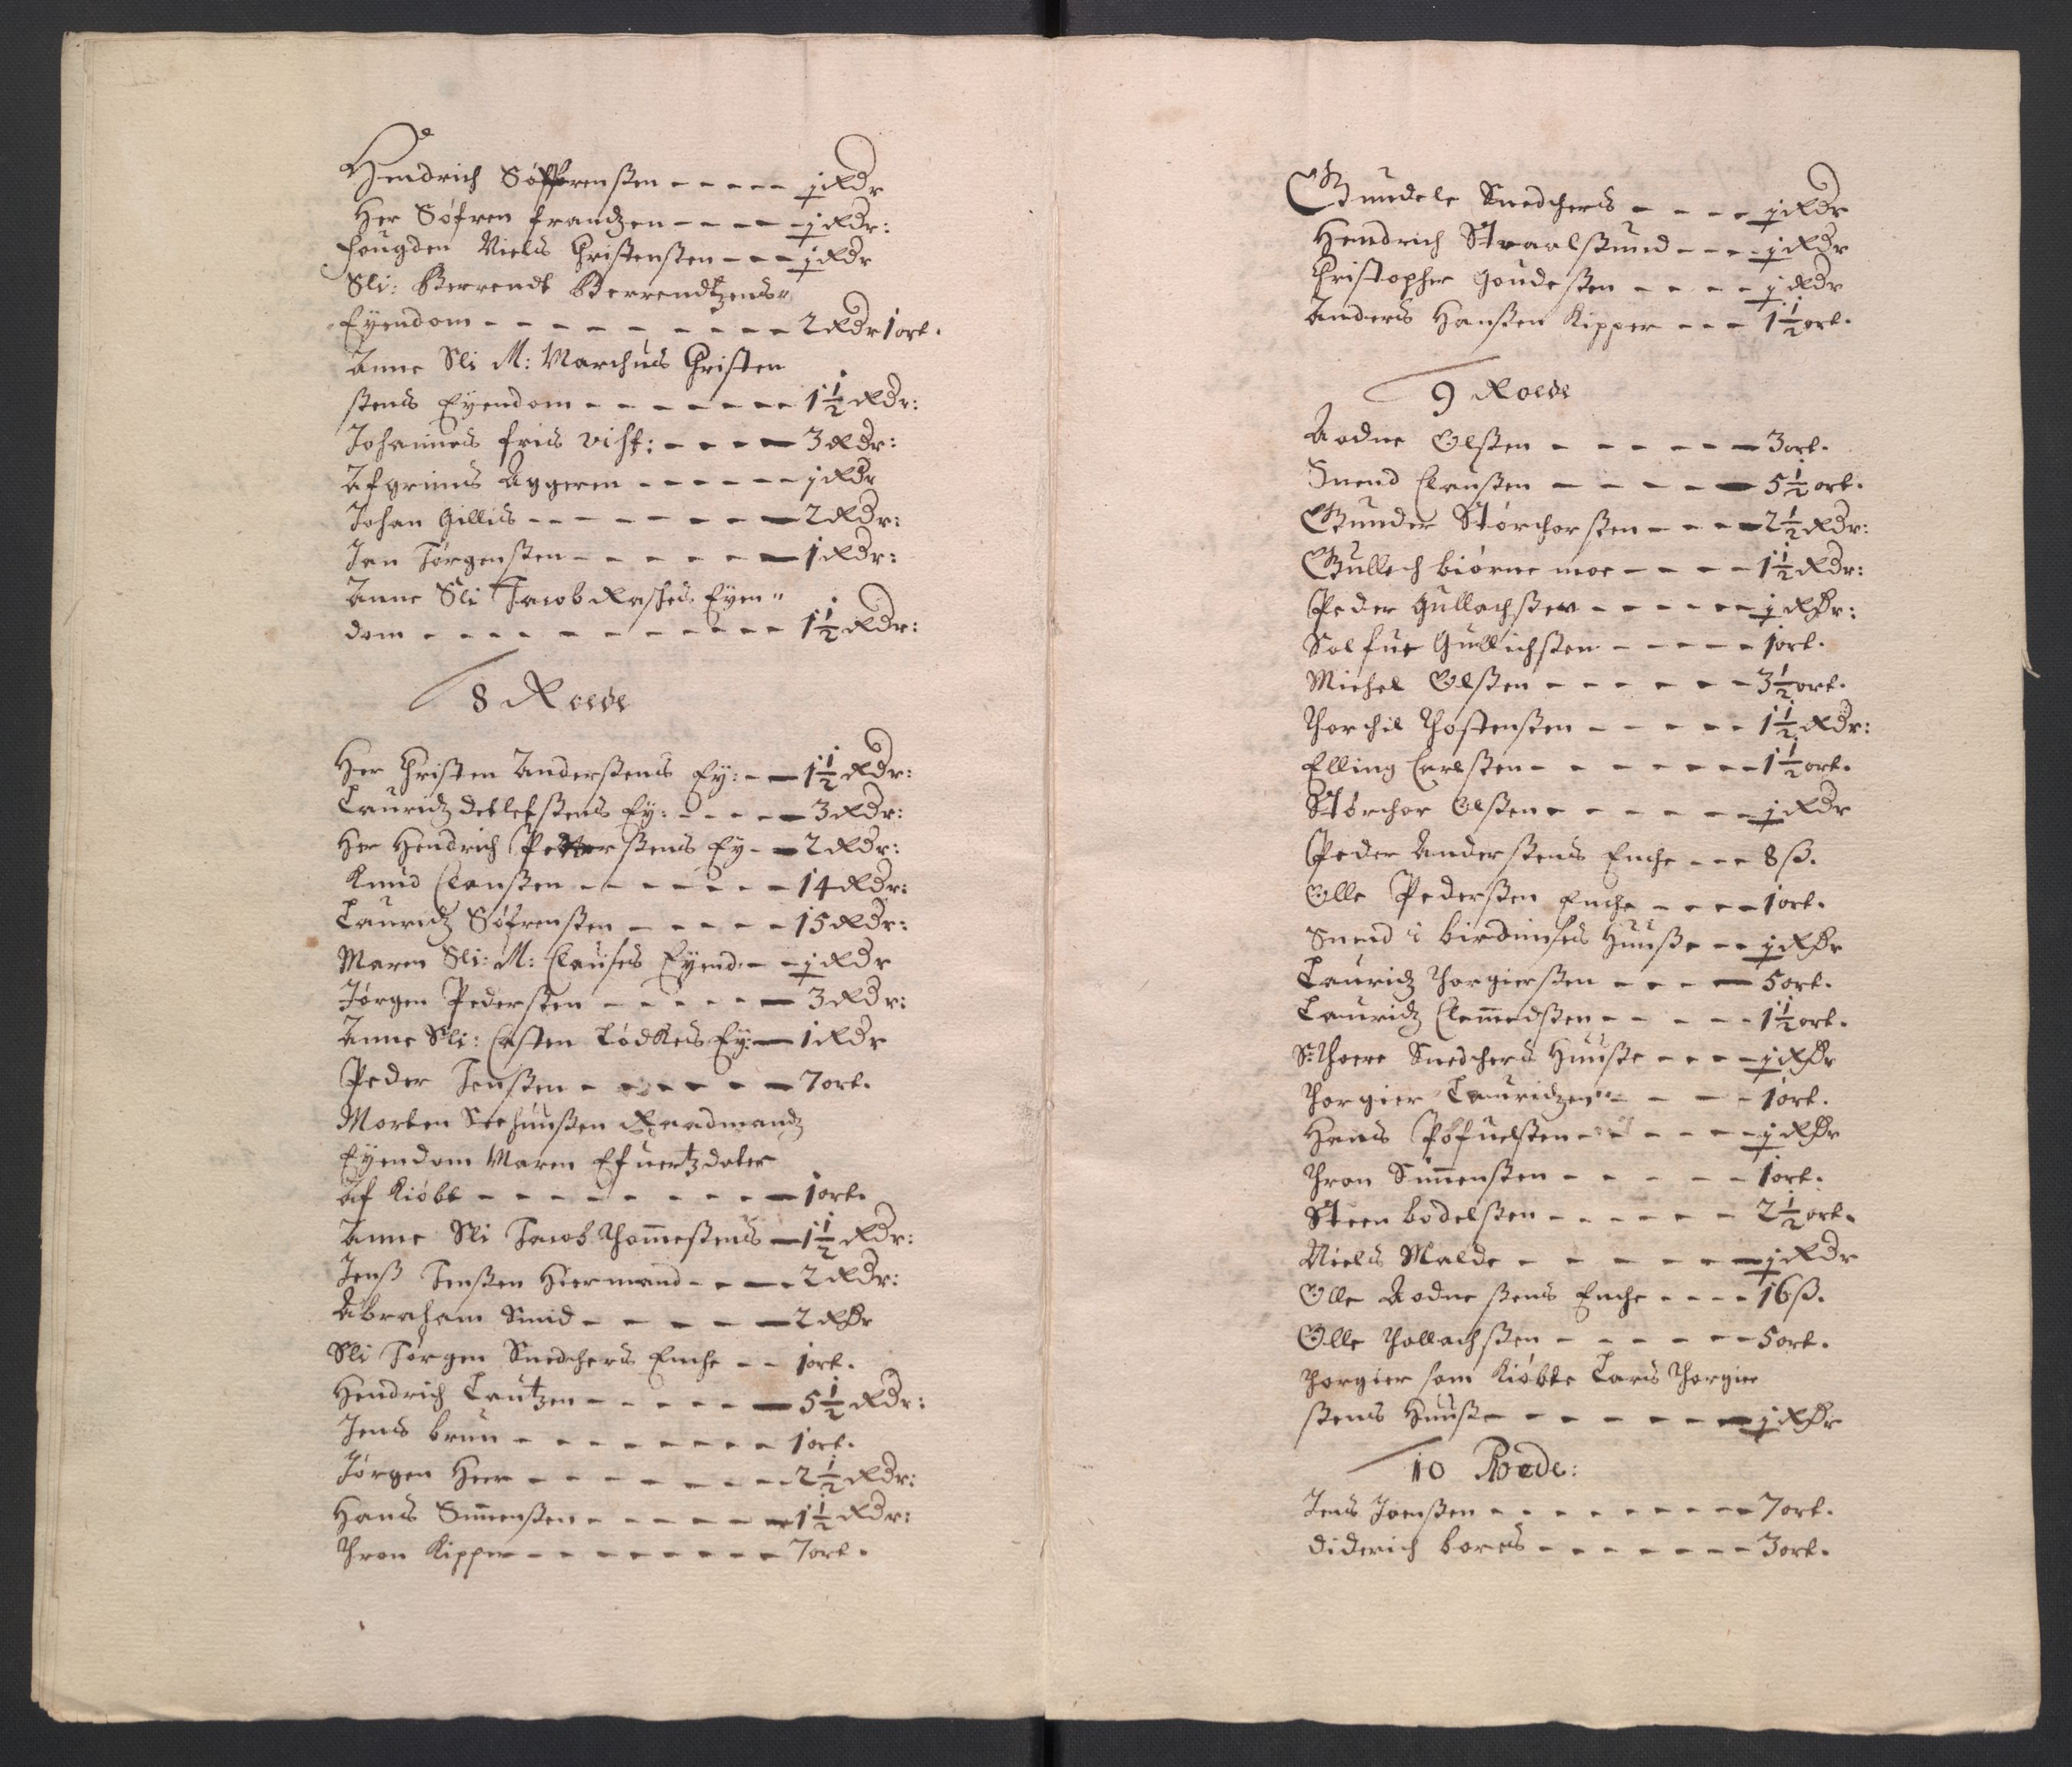 Hendrich Søffrenßen - - - - - j Rdr
Her Søfren frandzen - - - - j Rdr:
fougden Niels Christensten - - - j Rdr
Sli: Berrendt Berrendtzens"
Eÿendom - - - - - - - - - 2 Rdr 1 ort.
Anne Sli M: Marchus Christen
stens Eÿendom - - - - - - - - 1½ Rdr:
Johannes friis vist: - - - - 3 Rdr:
Asgrimus Aggeren - - - - - - j Rdr
Johan Gillis - - - - - - - - 2 Rdr:
Jan Jørgensten - - - - - - 1 Rdr:
Anne Sli Jacob Rasches Eÿen"
dom - - - - - - - - - - - 1½ Rdr:
8 Roede
Her Christen Anderßens Eÿ: - - 1½ Rdr:
Lauridz detlefstens Eÿ: - - - - 3 Rdr:
Her Hendrich Petterßens Eÿ - - 2 Rdr:
Knud Claußen - - - - - - - 14 Rdr:
Lauridz Søfrenßen - - - - - 15 Rdr:
Maren Sli: M: Clauses Eÿend: - - j Rdr
Jørgen Pedersten - - - - - - 3 Rdr:
Anne Sli: Casten Lødkes Eÿ: - 1 Rdr
Peder Jenßen - - - - - - 7 ort.
Morten Seehuußen Raadmandz
Eÿendom Maren Efuertzdater
Af Kiøbt - - - - - - - - - 1 ort.
Anne Sli Jacob Thommestens - 1½ Rdr:
Jenß Jenßen Hiermand - - - 2 Rdr:
Abraham Smid - - - - - - 2 Rdr
Sli Jørgen Snedchers Enche - - 1 ort.
Hendrich Lautzen - - - - - - 5½ Rdr:
Jens brun - - - - - - - - 1 ort.
Jørgen Heer - - - - - - - - 2½ Rdr:
Hans Simensten - - - - - - 1½ Rdr:
Thron Kipper - - - - - - - - 7 ort.
Gundele Snedchers - - - - j Rdr
Hendrich Straalsund - - - - j Rdr
Christopher Goudesten - - - - j Rdr
Anders Hanßen Kipper - - - 1½ ort.
9 Roede
Aodne Olßen - - - - - - 3 ort.
Suend Claußen - - - - - 5½ ort.
Gunder Størchorsten - - - - 2½ Rdr:
Gullech biørne moe - - - - 1½ Rdr:
Peder Gullachßen - - - - - - j Rdr:
Solfue Gullichsten - - - - - 1 ort.
Michel Olßen - - - - - - 3½ ort.
Thorchil Thostensten - - - - - 1½ Rdr:
Elling Carlsten - - - - - - - 1½ ort.
Størchor Olsten - - - - - - j Rdr
Peder Anderstens Enche - - - 8 ß.
Olle Pedersten Enche - - - - 1 ort.
Suend i birdmises Huuße - - j Rdr
Lauridz Thorgiersten - - - - 5 ort.
Lauridz Clemmedsten - - - - - 1½ ort.
Sr Thoere Snedchers Huuße - - - - j Rdr
Thorgier Lauridzen - - - - 1 ort.
Hans Pofuelsten - - - - - j Rdr
Thron Simmensten - - - - - 1 ort.
Steen bodelsten - - - - - - 2½ ort.
Niels Malde - - - - - - j Rdr
Olle Aodnestens Enche - - - - 16 ß.
Olle Thollachsten - - - - - - 5 ort.
Thorgier som Kiøbte Lars Thorgier
stens Huuße - - - - - - - j Rdr
10 Roede:
Jens Joenßen - - - - - - - - 7 ort.
diderich bores - - - - - - - 3 ort.